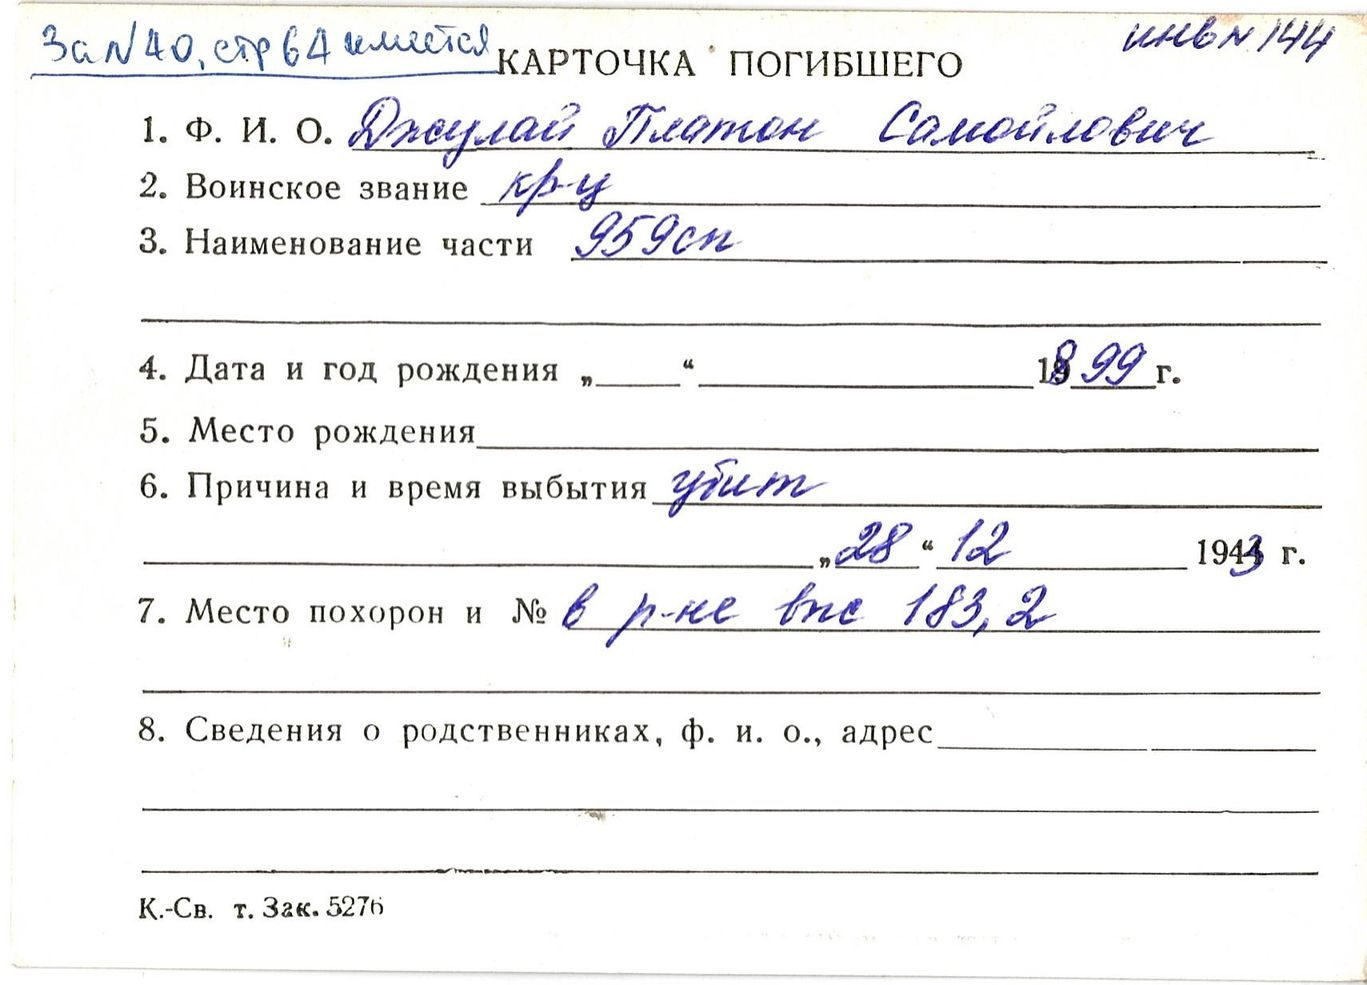 За N 40, стр 64 имеется
инв N 144
КАРТОЧКА ПОГИБШЕГО
1. Ф. И. О. Джулай Платон Самойлович
2. Воинское звание кр-ц
3. Наименование части 959сп
4. Дата и год рождения „ “ 1899 г.
5. Место рождения
6. Причина и время выбытия убит
„28“ 12 1943 г.
7. Место похорон и № в р-не выс 183,2
8. Сведения о родственниках, ф. и. о., адрес
К.-Св. т. Зак. 5276